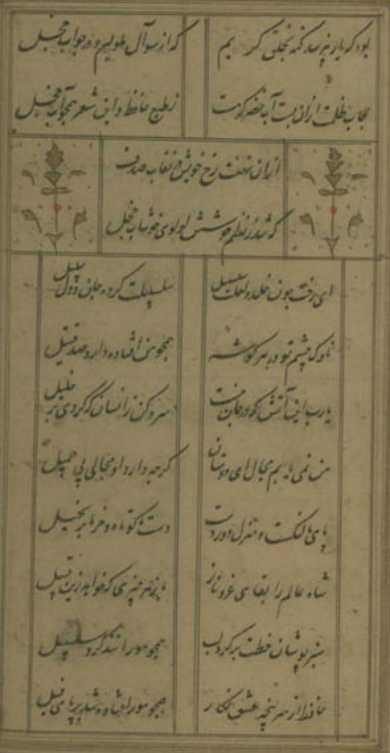 بود که یار نپرسد گنه ز خلق کریم که از سوآل ملولیم و در جواب خجل
حجاب ظلمت از آن بست آب خضر که گشت ز طبع حافظ و این شعر همچو آب خجل
از آن نهفت رخ خویش در نقاب صدف
که شد ز نظم خوشش لولوی خوشاب خجل
ای رخت چون خلد و لعلت سلسبیل سلسبیلت کرده جان و دل سبیل
ناوک چشم تو در هر گوشه همچو من افتاده دارد صد قتیل
یارب این آتش که در جان منست سرد کن زانسان که کردی بر خلیل
من نمی یابم مجال ای دوستان گرچه دارد او جمالی بس جمیل
پای ما لنگست و منزل دور دست دست ما کوتاه و خرما بر نخیل
شاه عالم را بقای عز و ناز باد و هر چیزی که خواهد زین قبیل
سبز پوشان خطت بر گرد لب همچو مورانند گرد سلسبیل
حافظ از سرپنجه عشق نگار همچو مور افتاده شد در پای پیل